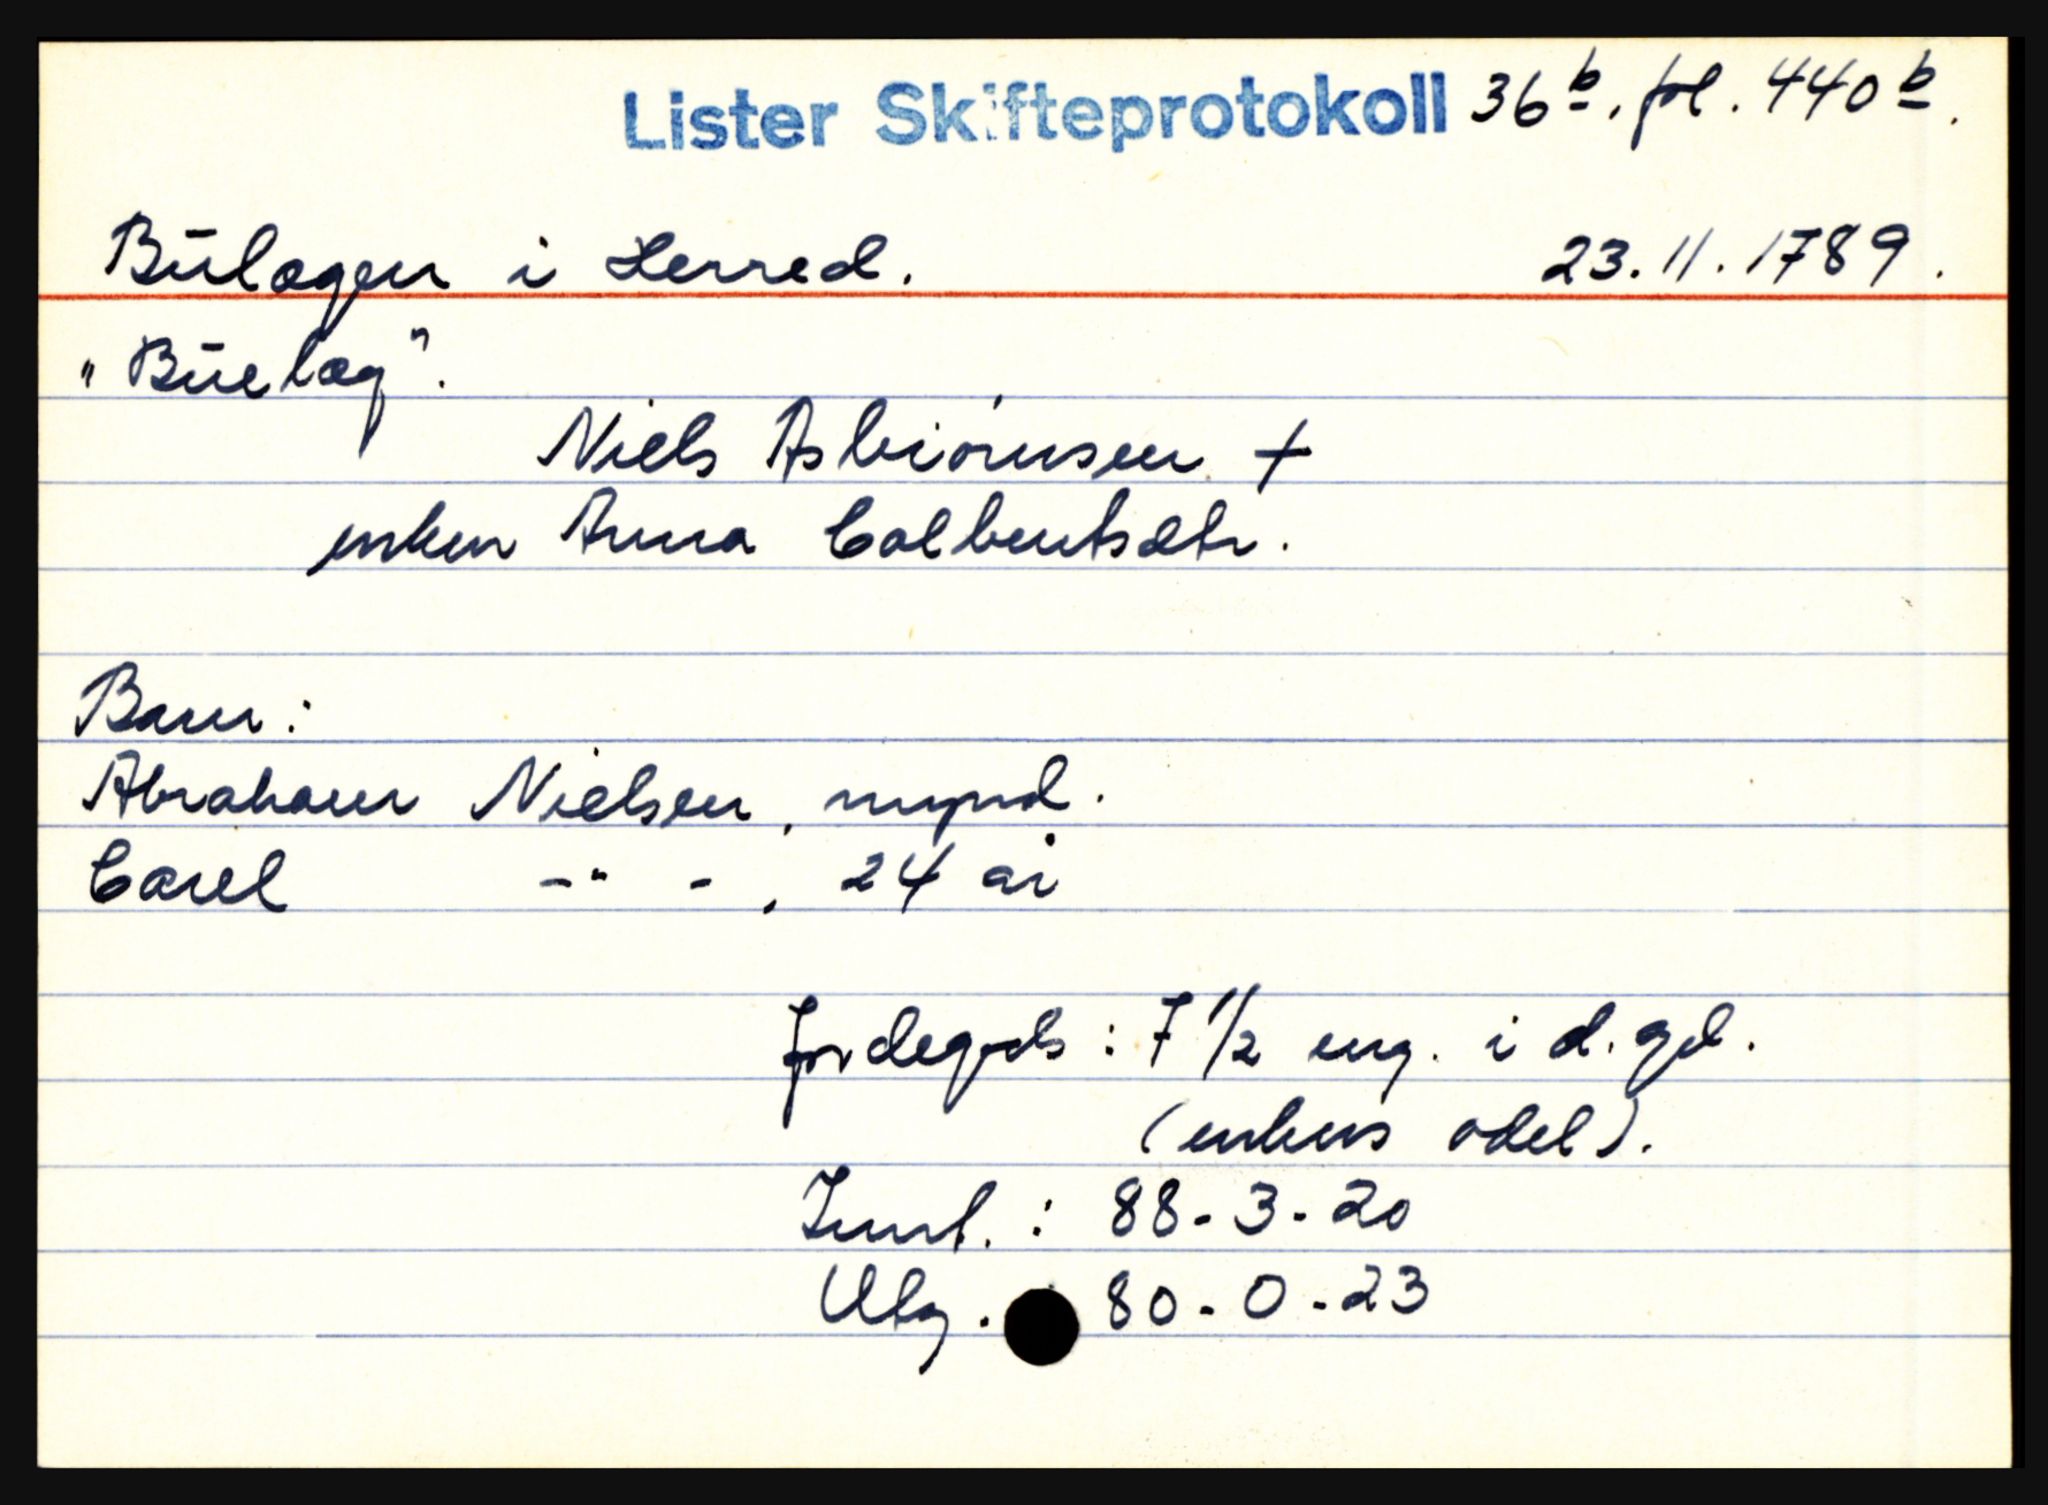 Lister Skifteprotokoll 36b, fol. 440b.
Būlagen i Herred. 23.11.1789.
"Būelag".
Niels Asbiørnsen +
enken Anna Colbentsdtr.
Barn:
Abraham Nielsen, mynd.
Carel -"-, 24 år
Jordegods: 7 1/2 eng. i d. gd.
(enkens odel).
Innt.: 88-3-20
Utg. 80-0-23